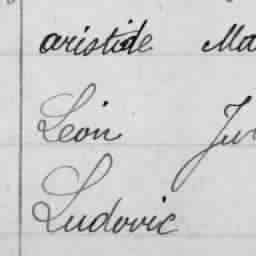 aristide Ma
Léon Ju
Ludovic